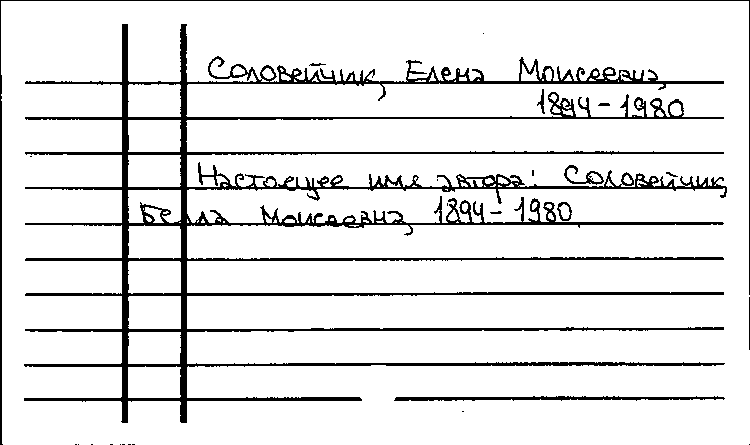 Соловейчик, Елена Моисеевна,
1894-1980
Настоящее имя автора: Соловейчик,
Белла Моисеевна, 1894-1980